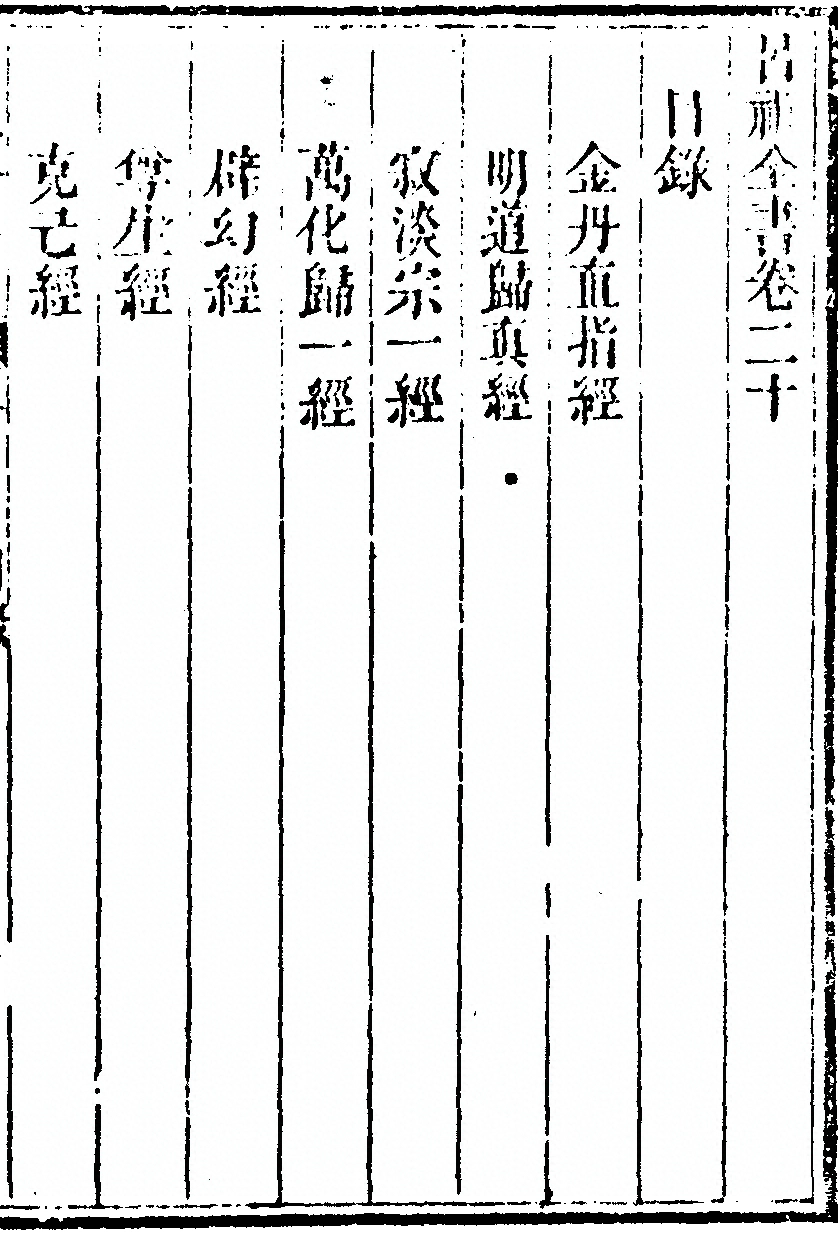 呂祖全書卷二十
目錄
金丹直指經
明道歸真經
寂淡宗一經
萬化歸一經
辟幻經
尊生經
克己經